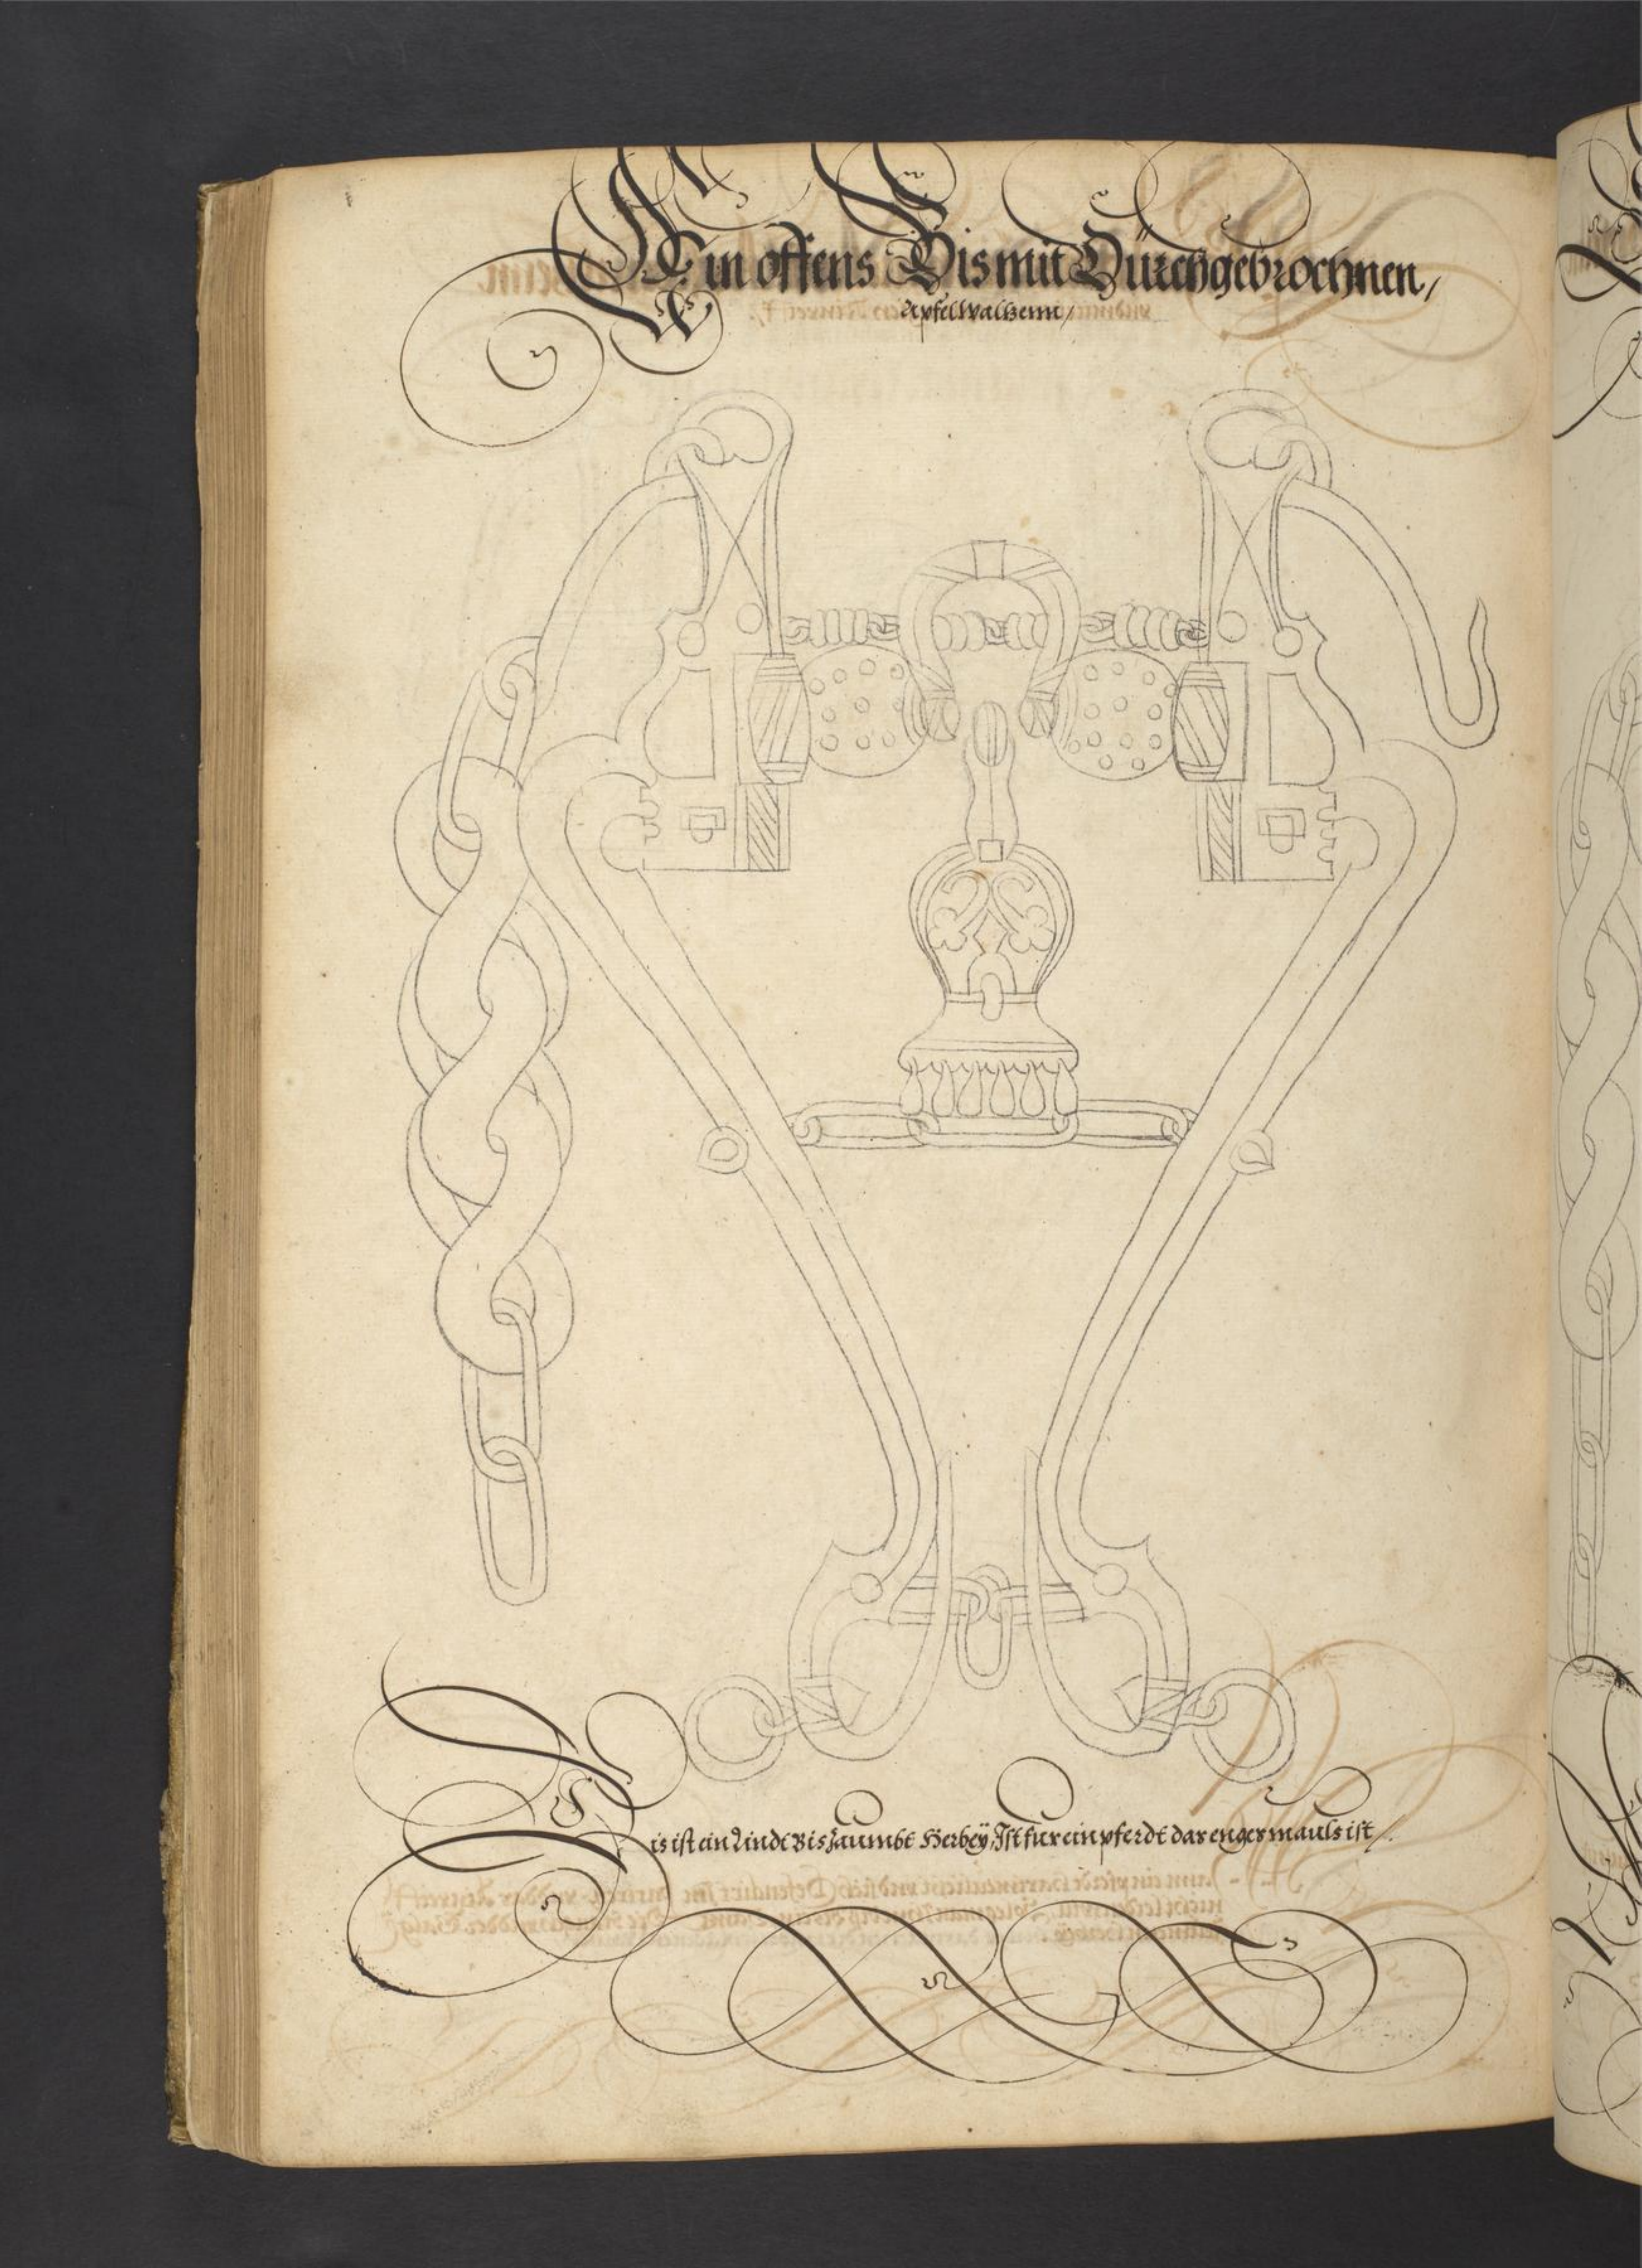 Ein offens Bis mit Dürchgebrochnen,
Apfel Walzenn/
Dis ist ein Lindt Bis Zaumbt Herbeÿ, Ist fur ein pferdt das enges mauls ist /.